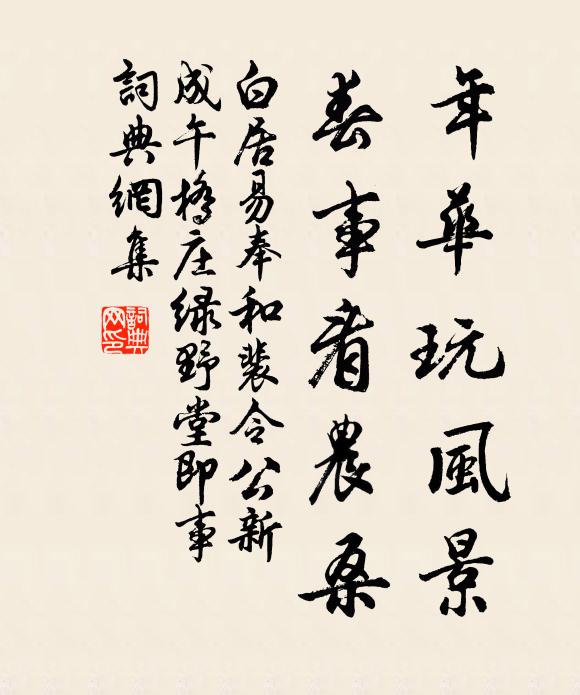 年華玩風景
春事看農桑
白居易奉和裴令公新
成午橋庄綠野堂即事
詞典網集
詞典网印